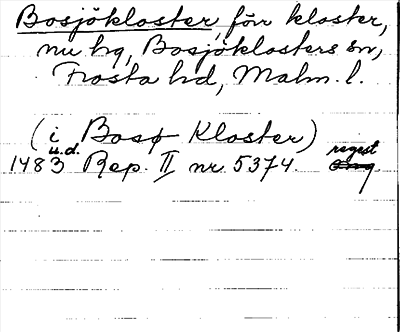 Bosjökloster, förr kloster,
nu hg, Bosjöklosters sn,
Frosta hd, Malm. l.
(i Bosø Kloster)
u.d.
1483 Rep. II nr. 5374. regest